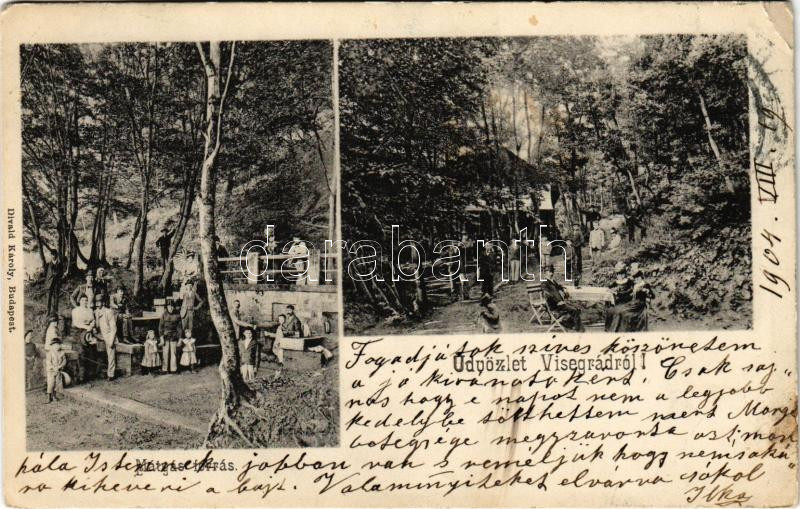 Divald Károly, Budapest.
darabanth.com
1904. VIII. 9
Üdvözlet Visegrádról!
Mátyás forrás.
Fogadjátok szives köszönetem
a jó kivánatokért. Csak saj-
nos hogy e napot nem a legjobb
kedelybe tölthettem mert
betegsége megzavarta azt, mon
hála Istennek jobban van s reméljük hogy nemsoká-
ra kiheveri a bajt. Valamennyiteket elvárva csókol
Ilka